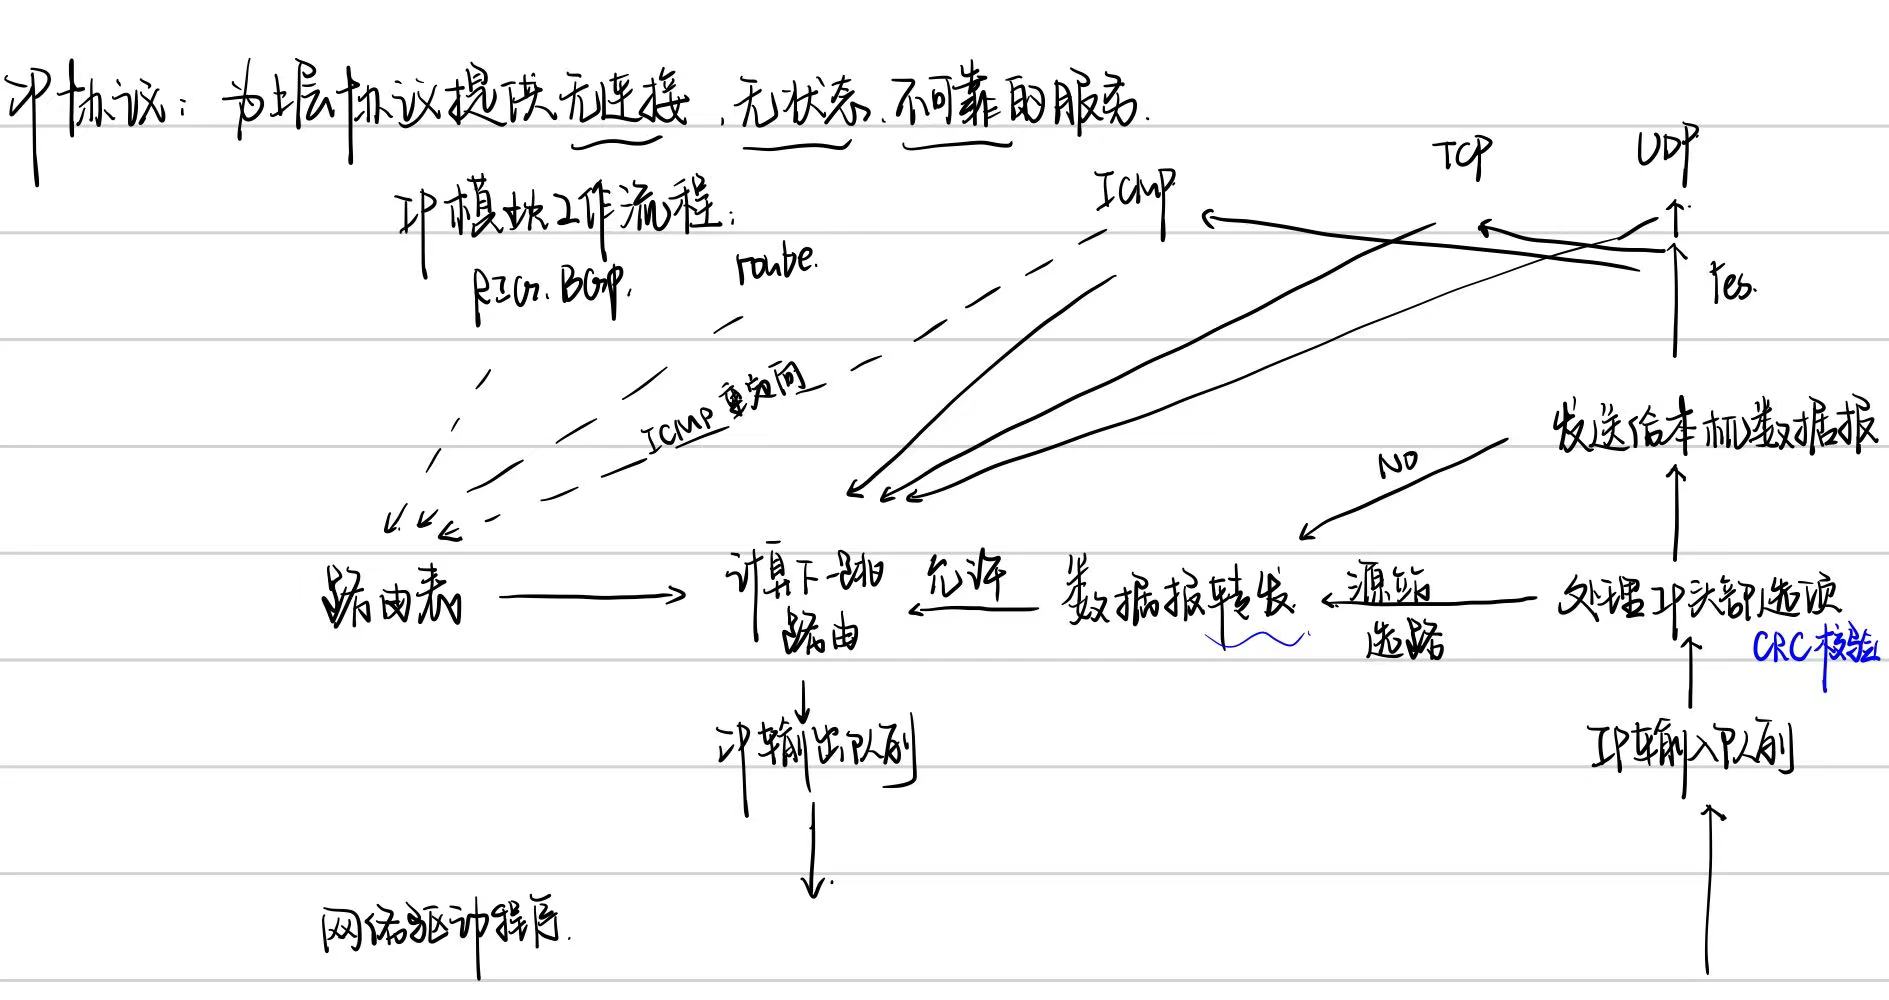 IP协议：为上层协议提供无连接、无状态、不可靠的服务.
TCP
UDP
ICMP
IP模块工作流程：
BGP.
route.
Yes.
ICMP重定向
发送给本机数据报
NO
路由表
计算下一跳
路由
允许
数据报转发
源站
选路
处理IP头部选项
CRC校验
IP输出队列
IP输入队列
网络驱动程序.